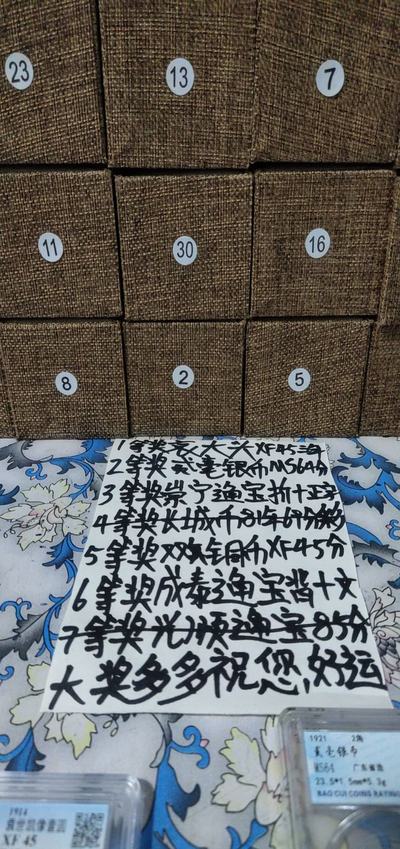 23
13
7
11
30
16
8
2
5
1等奖袁大头XF45
2等奖贰毫银币MS64分
3等奖崇宁通宝折十
4等奖长城币81年69分
5等奖双旗铜币XF45分
6等奖咸泰通宝背十文
7等奖光绪通宝85分
大奖多多祝您,好运
1914
XF 45
1921 2角
贰毫银币
MS64 广东省造
23.5*1.5mm*5.3g
BAO CUI COINS RATING